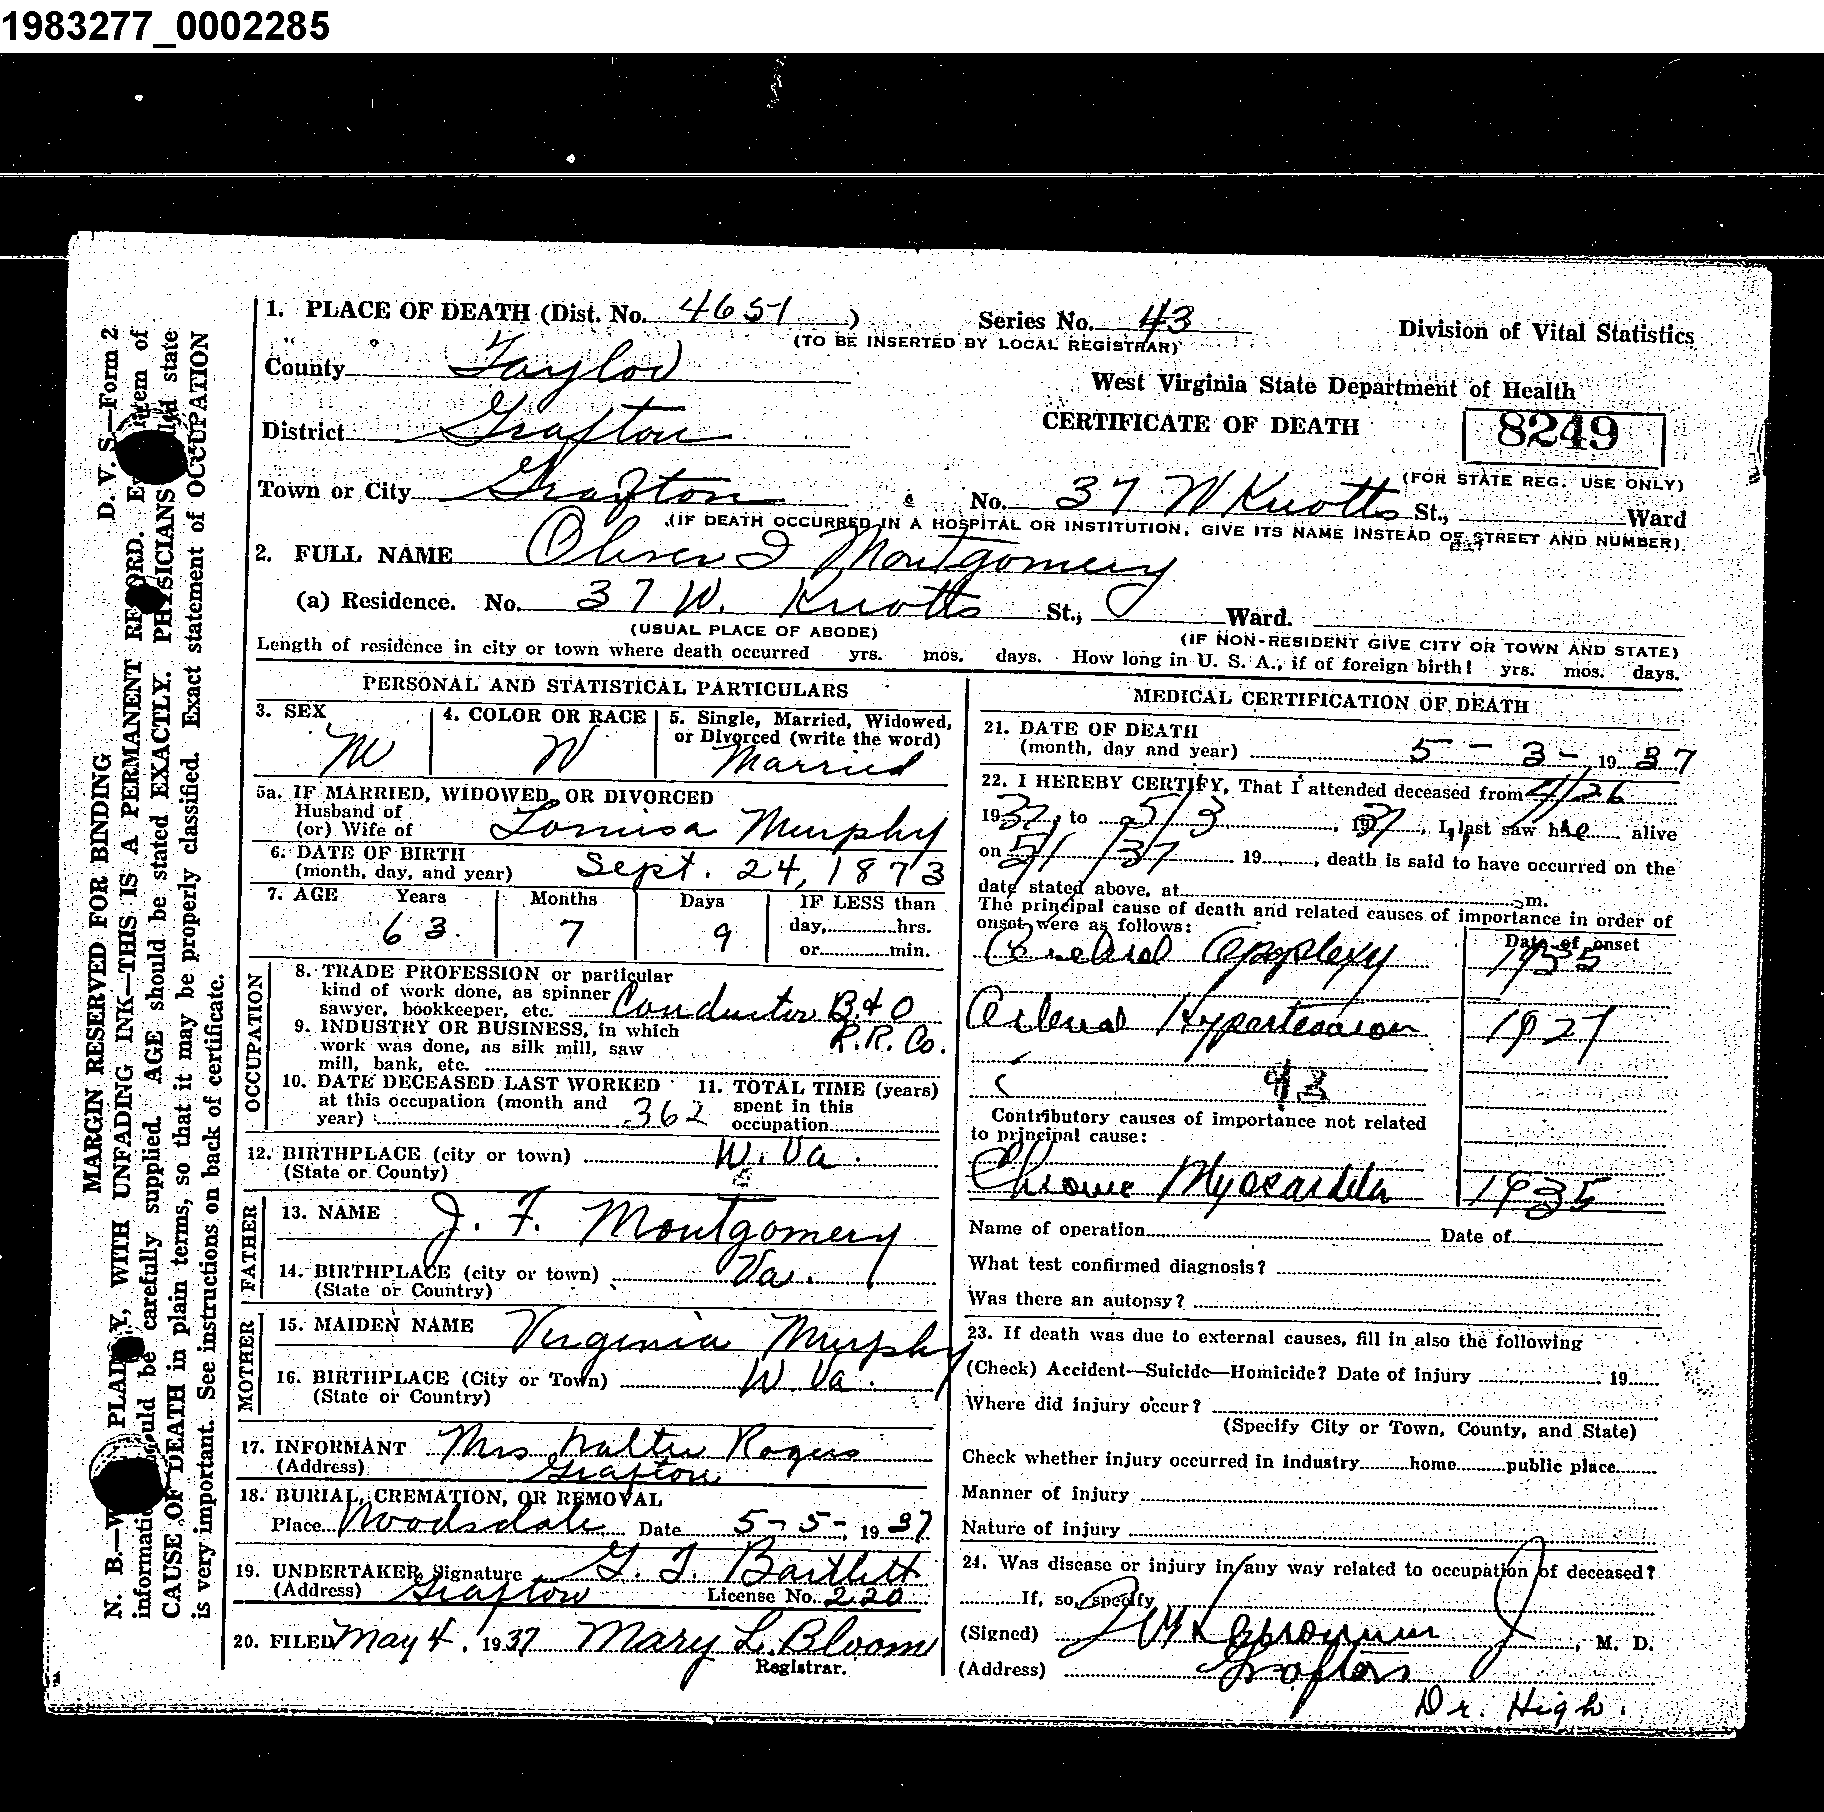 1983277_0002285
1. PLACE OF DEATH (Dist. No. 4651 )
Series No. 43
(TO BE INSERTED BY LOCAL REGISTRAR)
Division of Vital Statistics
County Taylor
West Virginia State Department of Health
District Grafton
CERTIFICATE OF DEATH
8249
(FOR STATE REG. USE ONLY)
Town or City Grafton No. 37 W Knotts St., Ward
(IF DEATH OCCURRED IN A HOSPITAL OR INSTITUTION, GIVE ITS NAME INSTEAD OF STREET AND NUMBER)
2. FULL NAME Oliver J Montgomery
(a) Residence. No. 37 W. Knotts St., Ward.
(USUAL PLACE OF ABODE)
(IF NON-RESIDENT GIVE CITY OR TOWN AND STATE)
Length of residence in city or town where death occurred yrs. mos. days. How long in U. S. A., if of foreign birth! yrs. mos. days.
PERSONAL AND STATISTICAL PARTICULARS
3. SEX
M
4. COLOR OR RACE
W
5. Single, Married, Widowed,
or Divorced (write the word)
Married
5a. IF MARRIED, WIDOWED, OR DIVORCED
Husband of
(or) Wife of Lomisa Murphy
6. DATE OF BIRTH
(month, day, and year) Sept. 24, 1873
7. AGE Years Months Days IF LESS than
63 7 9
day, hrs.
or min.
OCCUPATION
8. TRADE PROFESSION or particular
kind of work done, as spinner
sawyer, bookkeeper, etc. Conductor B&O
9. INDUSTRY OR BUSINESS, in which R.R. Co.
work was done, as silk mill, saw
mill, bank, etc.
10. DATE DECEASED LAST WORKED
at this occupation (month and
year) 362
11. TOTAL TIME (years)
spent in this
occupation
12. BIRTHPLACE (city or town) W. Va.
(State or County)
FATHER
13. NAME J. F. Montgomery
14. BIRTHPLACE (city or town) Va.
(State or Country)
MOTHER
15. MAIDEN NAME Virginia Murphy
16. BIRTHPLACE (City or Town) W. Va.
(State or Country)
17. INFORMANT Mrs Walter Rogers
(Address) Grafton
18. BURIAL, CREMATION, OR REMOVAL
Place Woodsdale Date 5-5-, 1937
19. UNDERTAKER Signature G. T. Bartlett
(Address) Grafton License No. 220
20. FILED May 4, 1937 Mary L. Bloom
Registrar.
MEDICAL CERTIFICATION OF DEATH
21. DATE OF DEATH
(month, day and year) 5 - 3 - 1937
22. I HEREBY CERTIFY, That I attended deceased from 4/26
1937, to 5/3, 1937, I last saw h alive
on 5/1/37 19 , death is said to have occurred on the
date stated above, at m.
The principal cause of death and related causes of importance in order of
onset were as follows:
Date of onset
Cerebral Apoplexy 1935
Arterial Hypertension 1927
93
Contributory causes of importance not related
to principal cause:
Chronic Myocarditis 1935
Name of operation Date of
What test confirmed diagnosis?
Was there an autopsy?
23. If death was due to external causes, fill in also the following
(Check) Accident—Suicide—Homicide? Date of injury 19
Where did injury occur?
(Specify City or Town, County, and State)
Check whether injury occurred in industry home public place
Manner of injury
Nature of injury
24. Was disease or injury in any way related to occupation of deceased?
If, so, specify
(Signed) , M. D.
(Address) Grafton
Dr. High.
D. V. S.—Form 2
MARGIN RESERVED FOR BINDING
N. B.—W PLAINLY, WITH UNFADING INK—THIS IS A PERMANENT RECORD. Every item of
information should be carefully supplied. AGE should be stated EXACTLY. PHYSICIANS state
CAUSE OF DEATH in plain terms, so that it may be properly classified. Exact statement of OCCUPATION
is very important. See instructions on back of certificate.